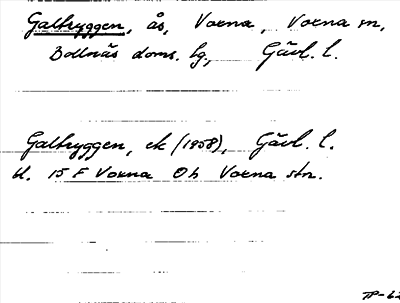 Galtryggen, ås, Voxna, Voxna sn,
Bollnäs doms. hg, Gävl. l.
Galtryggen, ek (1958), Gävl. l.
bl. 15 F Voxna Ob Voxna stn.